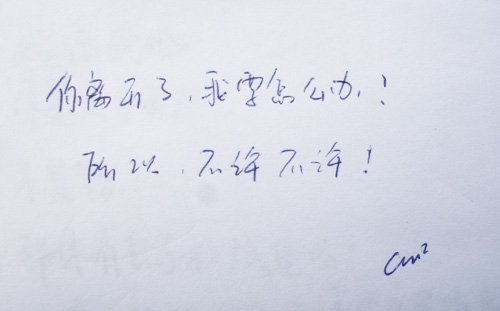 你离开了，我要怎么办，！
所以，不许不许！